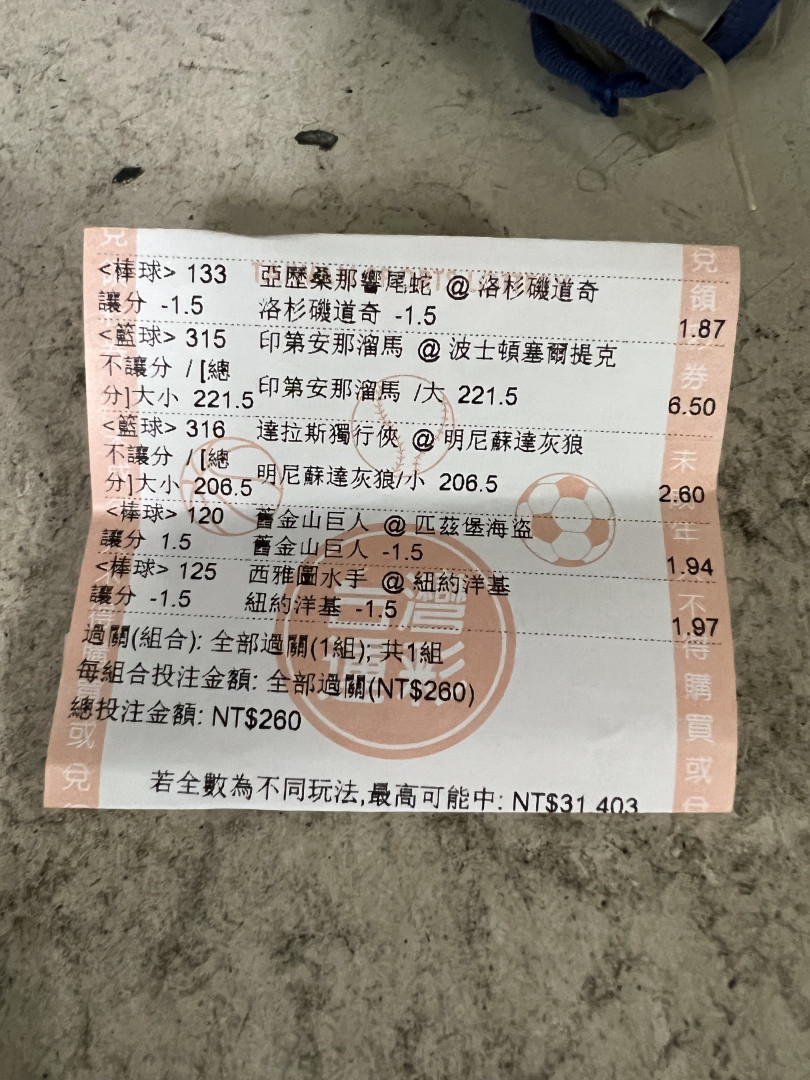 <棒球> 133 亞歷桑那響尾蛇 @ 洛杉磯道奇
讓分 -1.5 洛杉磯道奇 -1.5 1.87
<籃球> 315 印第安那溜馬 @ 波士頓塞爾提克
不讓分 / [總
分]大小 221.5 印第安那溜馬 /大 221.5 6.50
<籃球> 316 達拉斯獨行俠 @ 明尼蘇達灰狼
不讓分 / [總
分]大小 206.5 明尼蘇達灰狼/小 206.5 2.60
<棒球> 120 舊金山巨人 @ 匹茲堡海盜
讓分 1.5 舊金山巨人 -1.5 1.94
<棒球> 125 西雅圖水手 @ 紐約洋基
讓分 -1.5 紐約洋基 -1.5 1.97
過關(組合): 全部過關(1組); 共1組
每組合投注金額: 全部過關(NT$260)
總投注金額: NT$260
若全數為不同玩法,最高可能中: NT$31,403